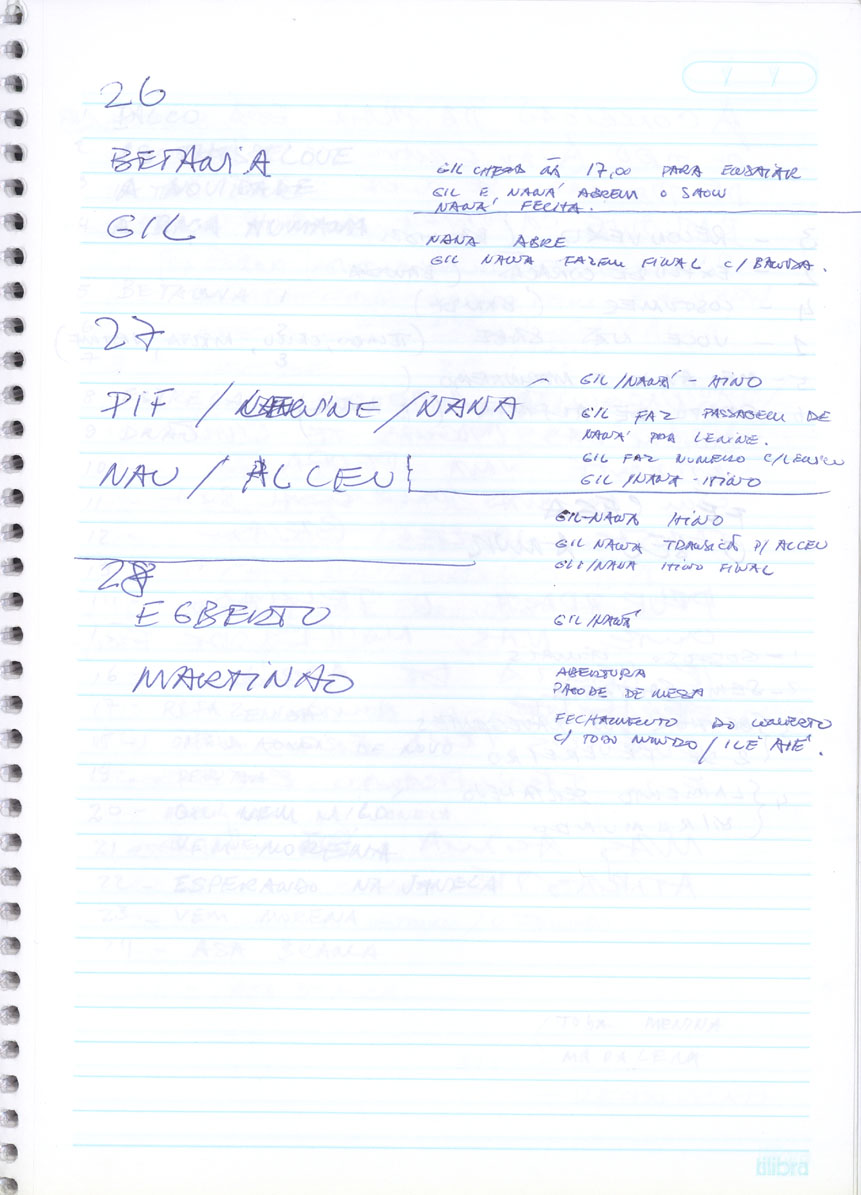 26
BETANIA
GIL CHEGA ÀS 17,00 PARA ENSAIAR
GIL E NANÁ ABREM O SHOW
NANÁ FECHA.
GIL
NANA ABRE
GIL NANA FAZEM FINAL C/ BANDA.
27
PIF / LENINE / NANA
GIL / NANÁ - HINO
GIL FAZ PASSAGEM DE
NANÁ POR LENINE.
GIL FAZ NUMERO C/ LENINE
GIL / NANA - HINO
NAU / ALCEU
GIL-NANA HINO
GIL NANA TRANSIÇÃO P/ ALCEU
GIL / NANA HINO FINAL
28
EGBERTO
GIL / NANÁ
MARTINÃO
ABERTURA
PAGODE DE MESA
FECHAMENTO DO CONCERTO
C/ TODO MUNDO / ILÊ AIÊ.
tilibra